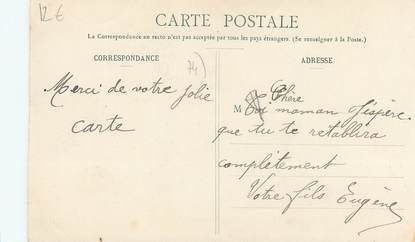 12 €
CARTE POSTALE
La Correspondance au recto n'est pas acceptée par tous les pays étrangers. (Se renseigner à la Poste.)
CORRESPONDANCE
74)
Merci de votre jolie
carte
ADRESSE
Chère
M maman j'éspère
que tu te retablira
complètement
Votre fils Eugène